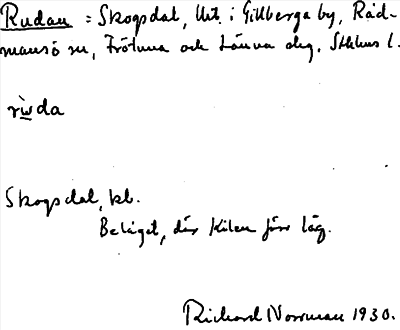 Rudan = Skogsdal, lht. i Gillberga by, Råd-
mansö sn, Frötuna och Länna skg, Sthlms l.
rẁda
Skogsdal, lht.
Beläget, där Kilen förr låg.
Richard Norrman 1930.